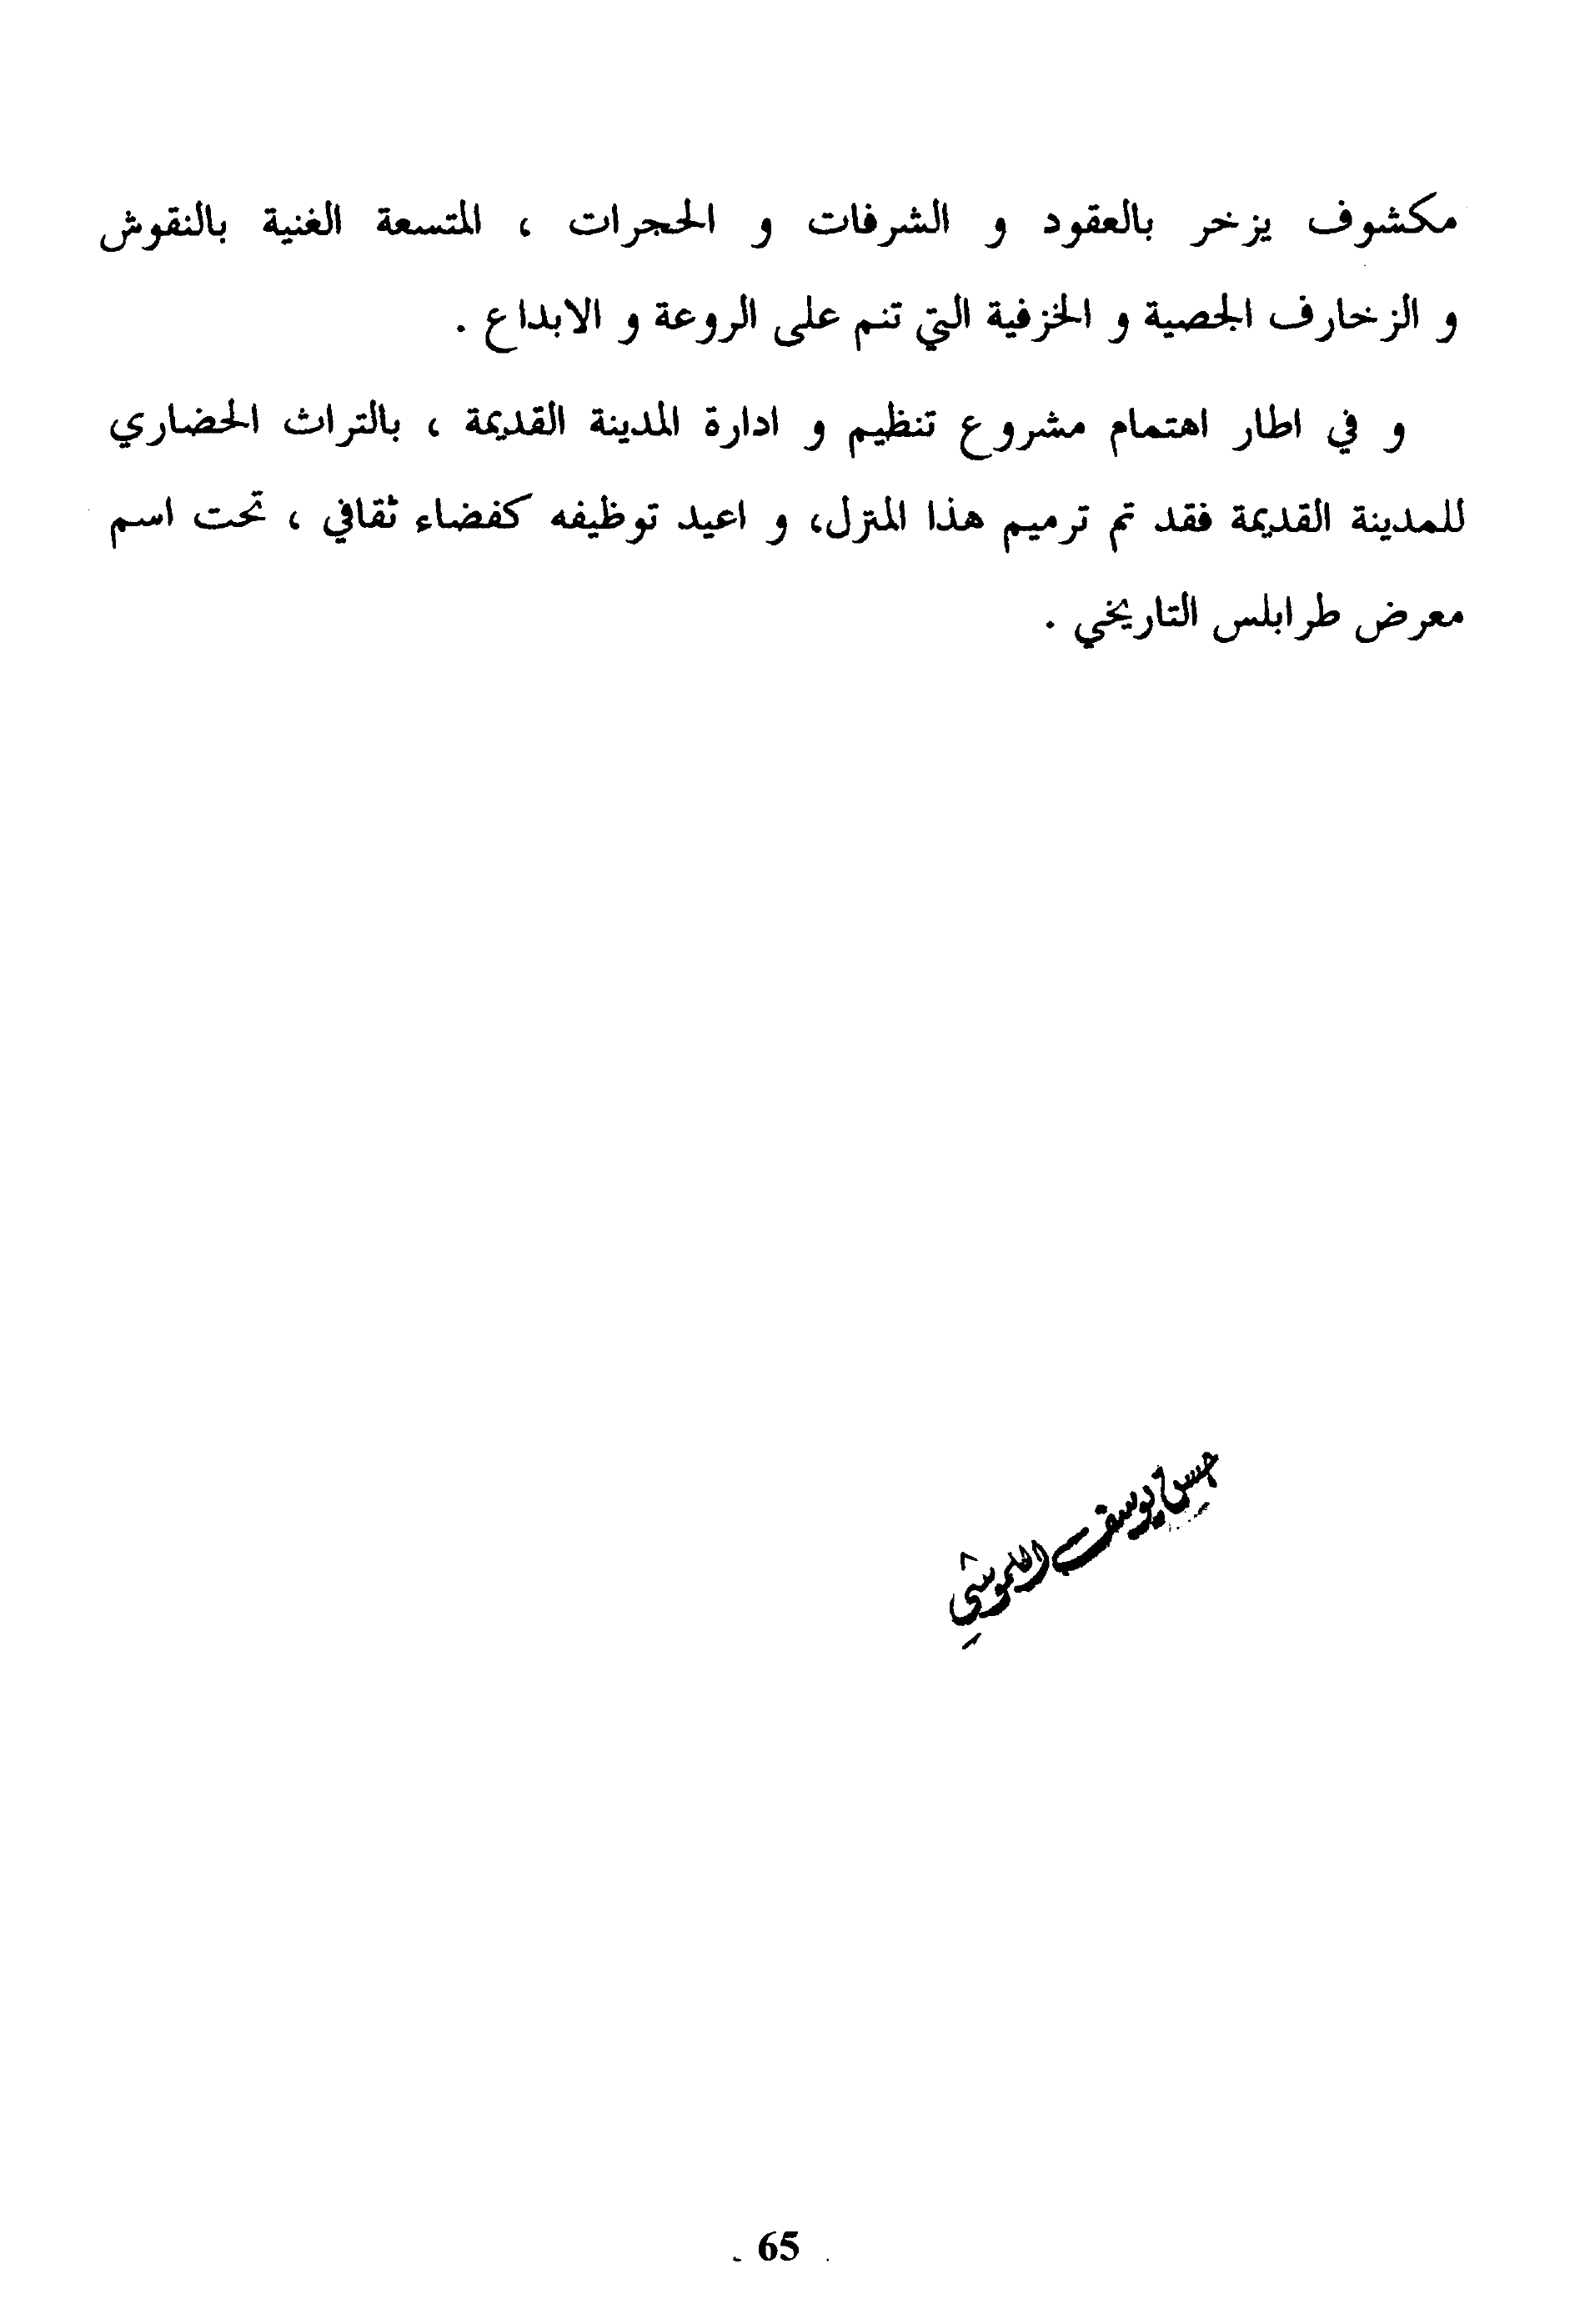 مكشوف يزخر بالعقود و الشرفات و الحجرات ، المتسعة الغنية بالنقوش
و الزخارف الجصية و الخزفية التي تنم على الروعة و الابداع .
و في اطار اهتمام مشروع تنظيم و ادارة المدينة القديمة ، بالتراث الحضاري
للمدينة القديمة فقد تم ترميم هذا المنزل، و اعيد توظيفه كفضاء ثقافي ، تحت اسم
معرض طرابلس التاريخي .
يوسف
65